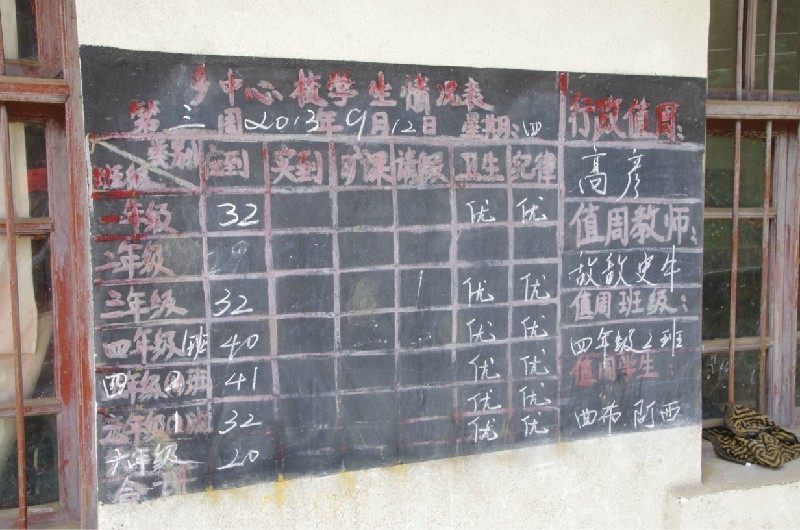 乡中心校学生情况表
第三周2013年9月12日 星期:四
类别 应到 实到 旷课 请假 卫生 纪律
班级
一年级 32 优 优
二年级
三年级 32 1 优 优
四年级1班 40 优 优
四年级2班 41 优 优
1 32 优 优
六年级 20 优 优
合
行政值周:
高彦
值周教师:
值周班级:
四年级2班
值周学生:
曲布 阿西